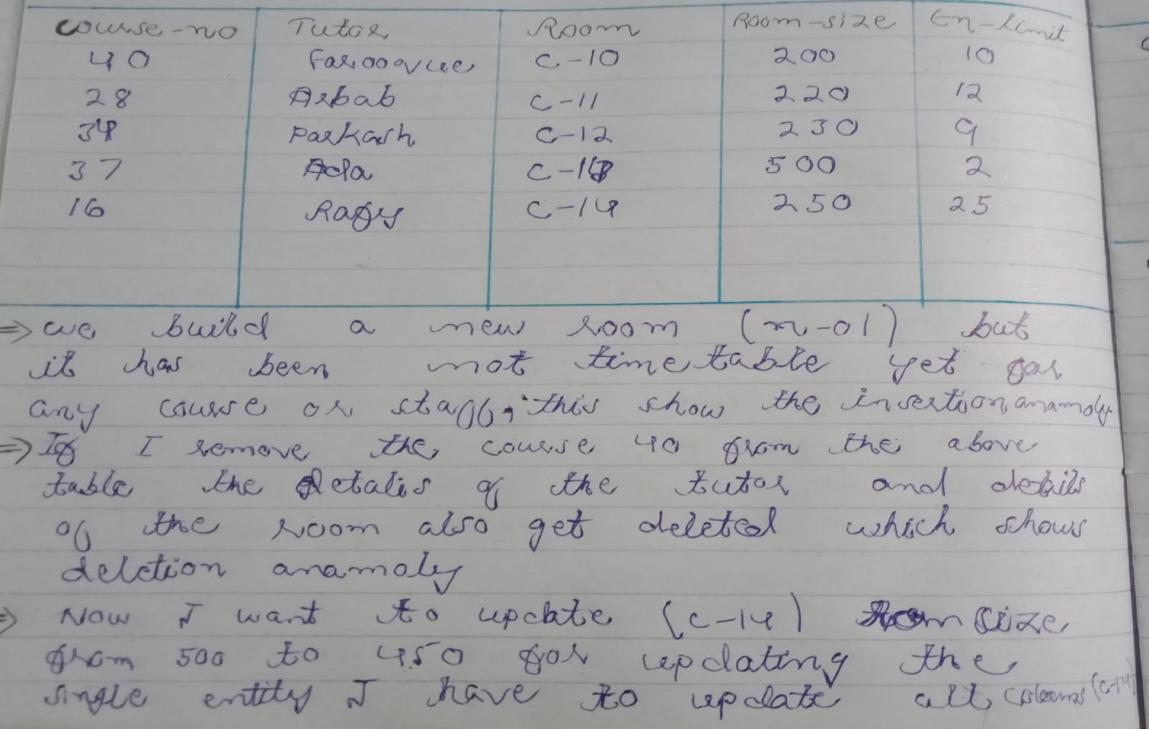 Course-no Tutor Room Room-size En-limit
40 Farooque C-10 200 10
28 Arbab C-11 220 12
34 Parkash C-12 230 9
37 Ada 500 2
16 C-14 250 25
=> we build a new room (n-01) but
it has been not time table yet for
any course or staff, this show the insertion anamoly
=> If I remove the course 40 from the above
table the Detalis of the tutor and details
of the room also get deleted which shows
deletion anamoly
=> Now I want to update (C-14) Room size
from 500 to 450 for updating the
single entity I have to update all (C-14)